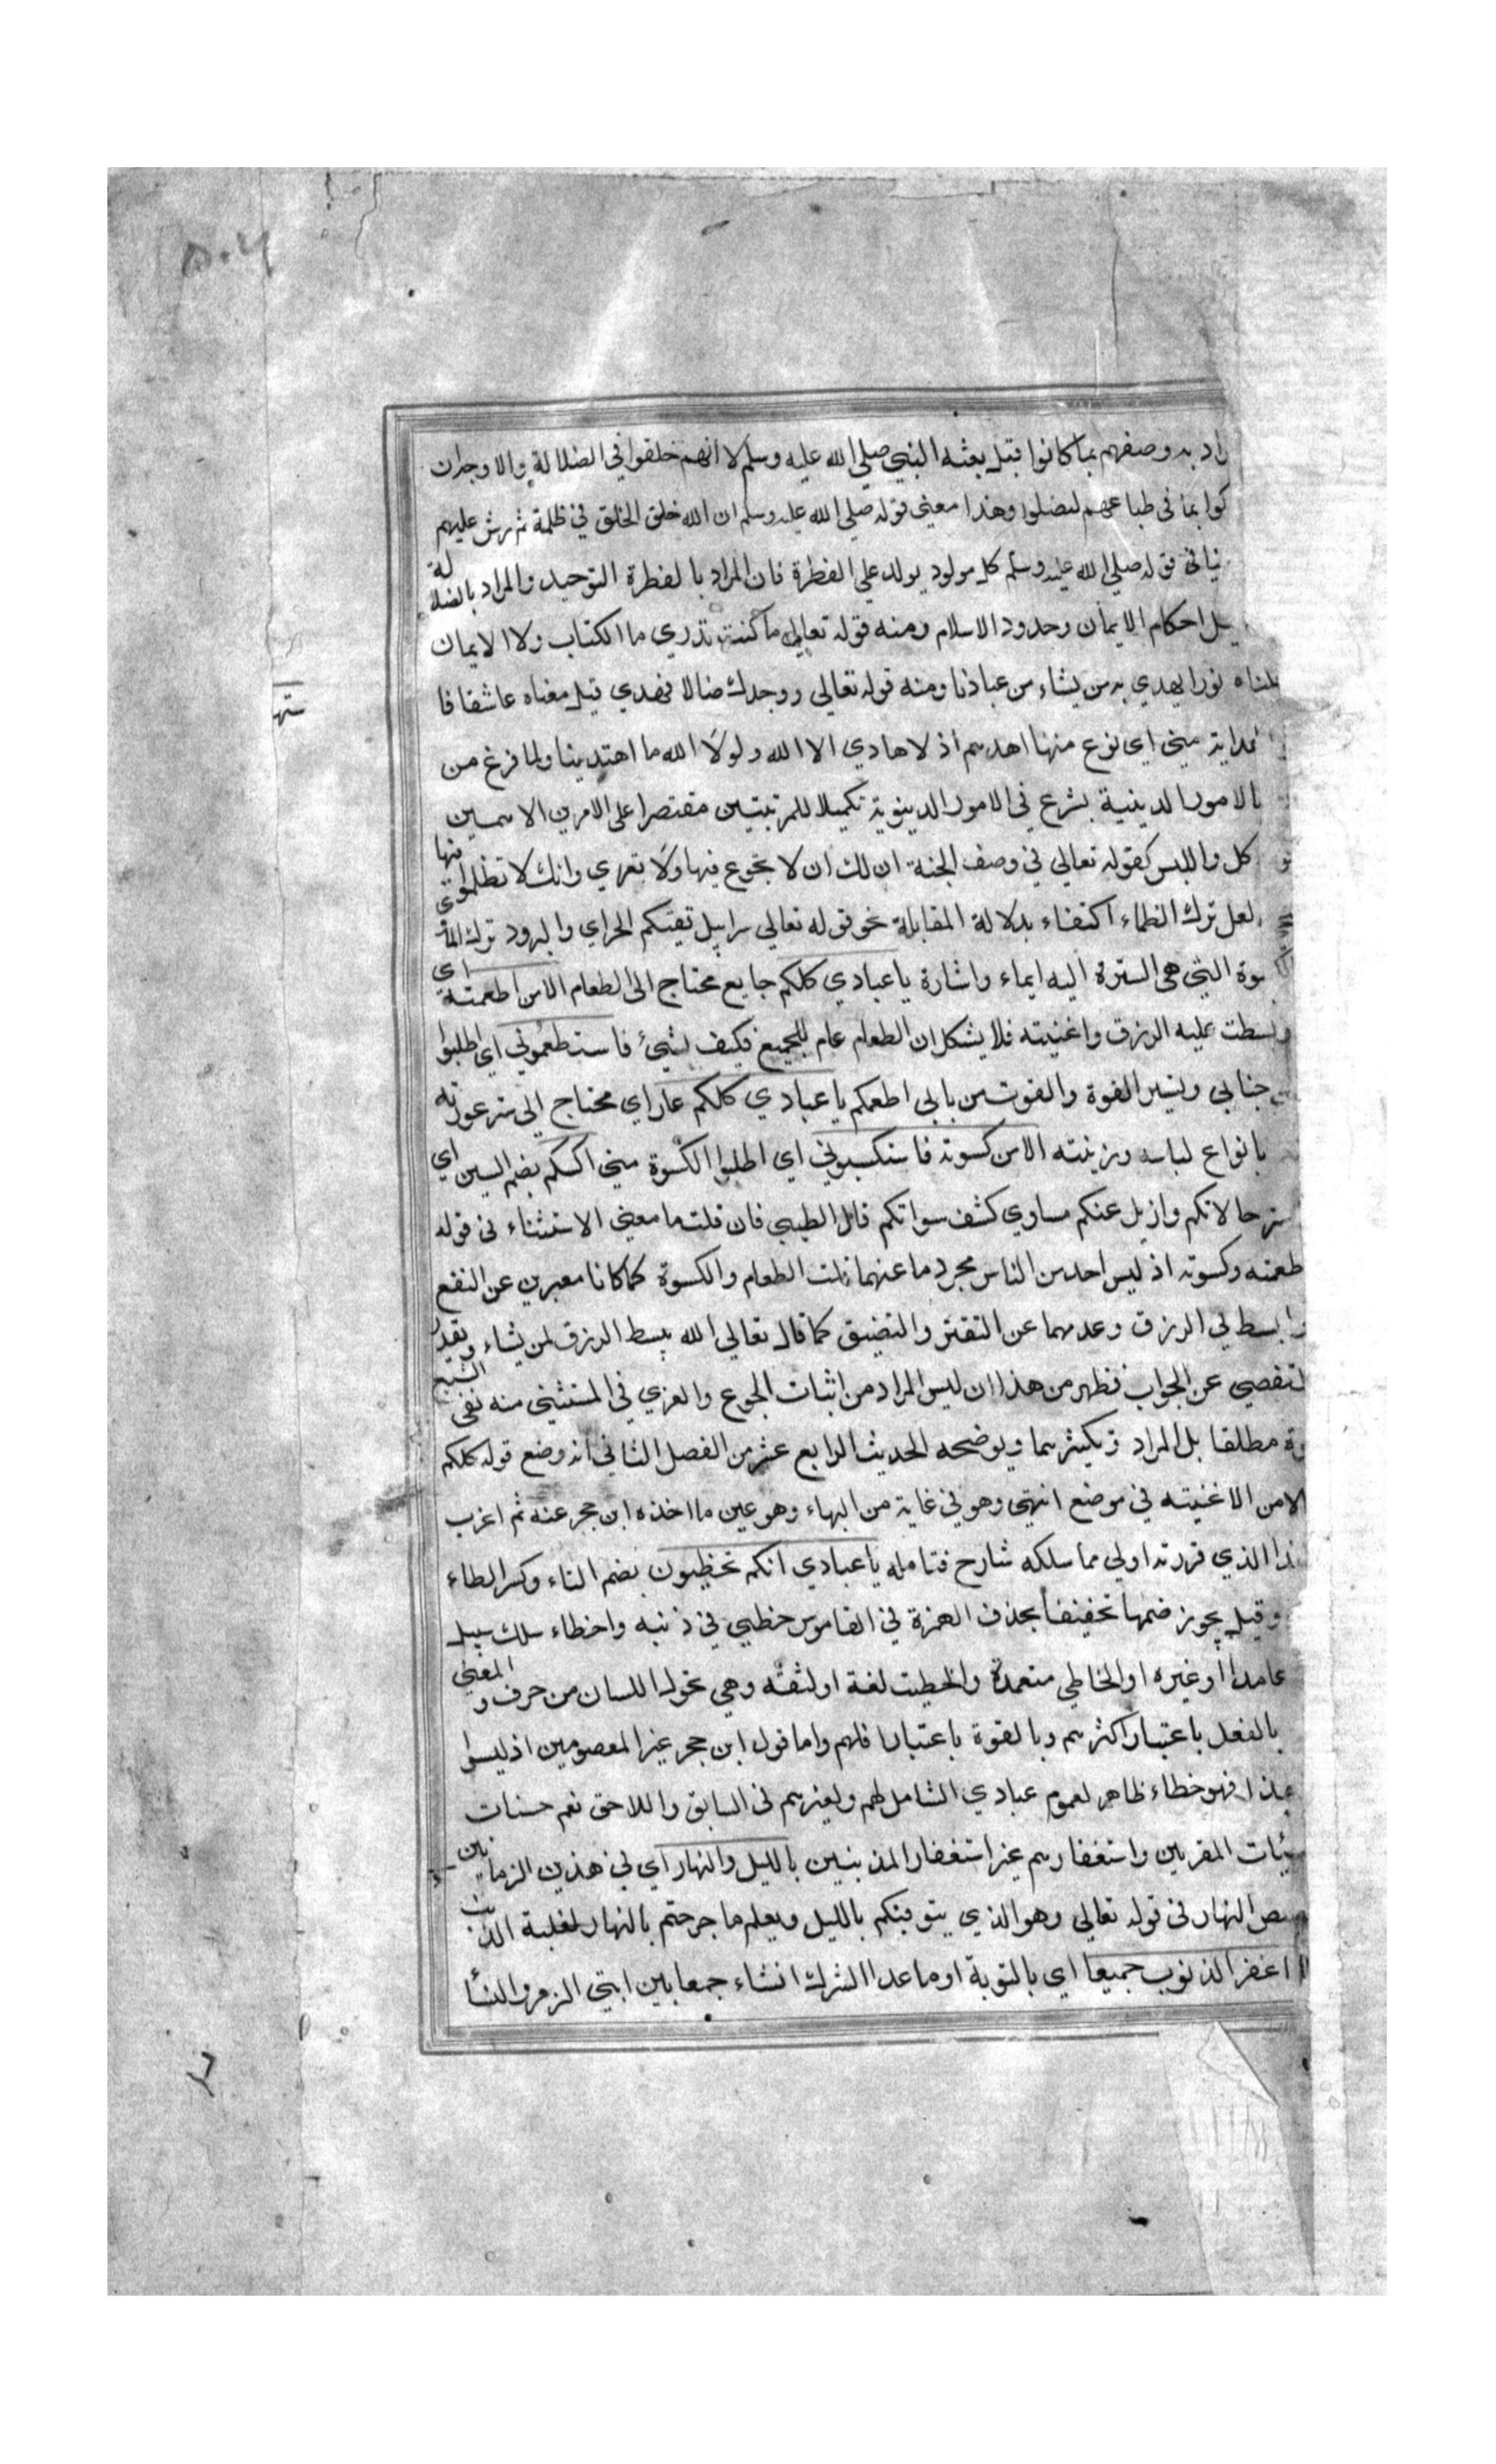 راد به وصفهم بما كانوا قبل بعثه النبي صلي الله عليه وسلم لا انهم خلقوا في الضلالة والاوجه ان
كوا بما في طباعهم لضلوا وهذا معني قوله صلي الله عليه وسلم ان الله خلق الخلق في ظلمة ثم رش عليهم
ينافي قوله صلي الله عليه وسلم كل مولود يولد علي الفطرة فان المراد بالفطرة التوحيد والمراد بالضلالة
يل احكام الايمان وحدود الاسلام ومنه قوله تعالي ما كنت تدري ما الكتاب ولا الايمان
جعلناه نورا يهدي به من يشاء من عبادنا ومنه قوله تعالي ووجدك ضالا فهدي قيل معناه عاشقا فا
الهداية مني اي نوع منها اهدهم اذ لا هادي الا الله ولولا الله ما اهتدينا ولما فرغ من
بالامور الدينية شرع في الامور الدينوية تكميلا للمرتبتين مقتصرا علي الامرين الاهمين
كل واللبس كقوله تعالي في وصف الجنة ان لك ان لا تجوع فيها ولا تعري وانك لا تظماء فيها
لعل ترك الظماء اكتفاء بدلالة المقابلة نحو قوله تعالي سرابيل تقيكم الحر اي والبرود ترك المأوي
سوة التي هي السترة اليه ايماء واشارة يا عبادي كلكم جايع محتاج الي الطعام الا من اطعمته اي
وبسطت عليه الرزق واغنيته فلا يشكل ان الطعام عام للجميع فكيف يستثني فاستطعموني اي اطلبوا
جنابي وتيسير القوة والقوت من بابي اطعمكم يا عبادي كلكم عار اي محتاج الي ستر عورته
بانواع لباسه وزينته الا من كسوته فاستكسوني اي اطلبوا الكسوة مني اكسكم بضم السين اي
ستر حالاتكم وازيل عنكم مساوي كشف سواتكم قال الطيبي فان قلت ما معني الاستثناء في قوله
طعمته وكسوته اذ ليس احد من الناس مجردما عنهما قلت الطعام والكسوة كما كانا معبرين عن النفع
وا بسط لي الرزق وعدمهما عن التقتر والتضيق كما قال تعالي الله يبسط الرزق لمن يشاء ويقدر
لتفصي عن الجواب فظهر من هذا ان ليس المراد من اثبات الجوع والعري في المستثني منه نفي الشبع
وة مطلقا بل المراد تكثيرهما ويوضحه الحديث الرابع عشر من الفصل الثاني انه وضع قوله كلكم
الا من اغنيته في موضع انتهي وهو في غاية من البهاء وهو عين ما اخذه ابن حجر عنه ثم اغرب
هذا الذي قررته اولي مما سلكه شارح فتامله يا عبادي انكم تخطيون بضم التاء وكسر الطاء
وقيل يجوز ضمها تخفيفا بحذف الهمزة في القاموس خطي في ذنبه واخطاء سلك سبيل
عامدا او غيره او الخاطي متعمدة واخطيت لغة او لثغة وهي تحول اللسان من حرف والمعني
بالفعل باعتبار اكثرهم وبالقوة باعتبار اقلهم واما قول ابن حجر غير المعصومين اذ ليسوا
بهذا فهو خطاء ظاهر لعموم عبادي الشامل لهم ولغيرهم في السابق واللاحق نعم حسنات
سيئات المقربين واستغفارهم غير استغفار المذنبين بالليل والنهار اي في هذين الزمانين
صص النهار في قوله تعالي وهو الذي يتوفيكم بالليل ويعلم ما جرحتم بالنهار لغلبة الذنب
اغفر الذنوب جميعا اي بالتوبة او ما عدا الشرك انشاء جمعا بين ايتي الزمر والنسأ